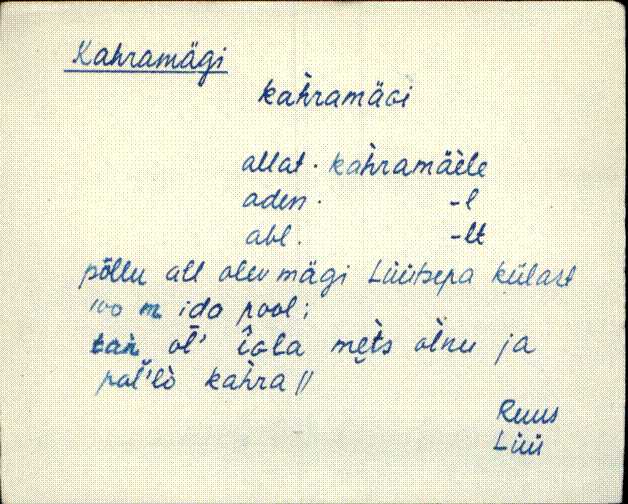 Kahramägi
kah̀ramäGi
allat. kah̀ramäele
aden. -l
abl. -lt
põllu all olev mägi Lüütsepa külast
100 m ida pool;
tah̀n ol̄' îGla mèts òlnu ja
pal'l̀ò kah̀ra //
Ruus
Lüü